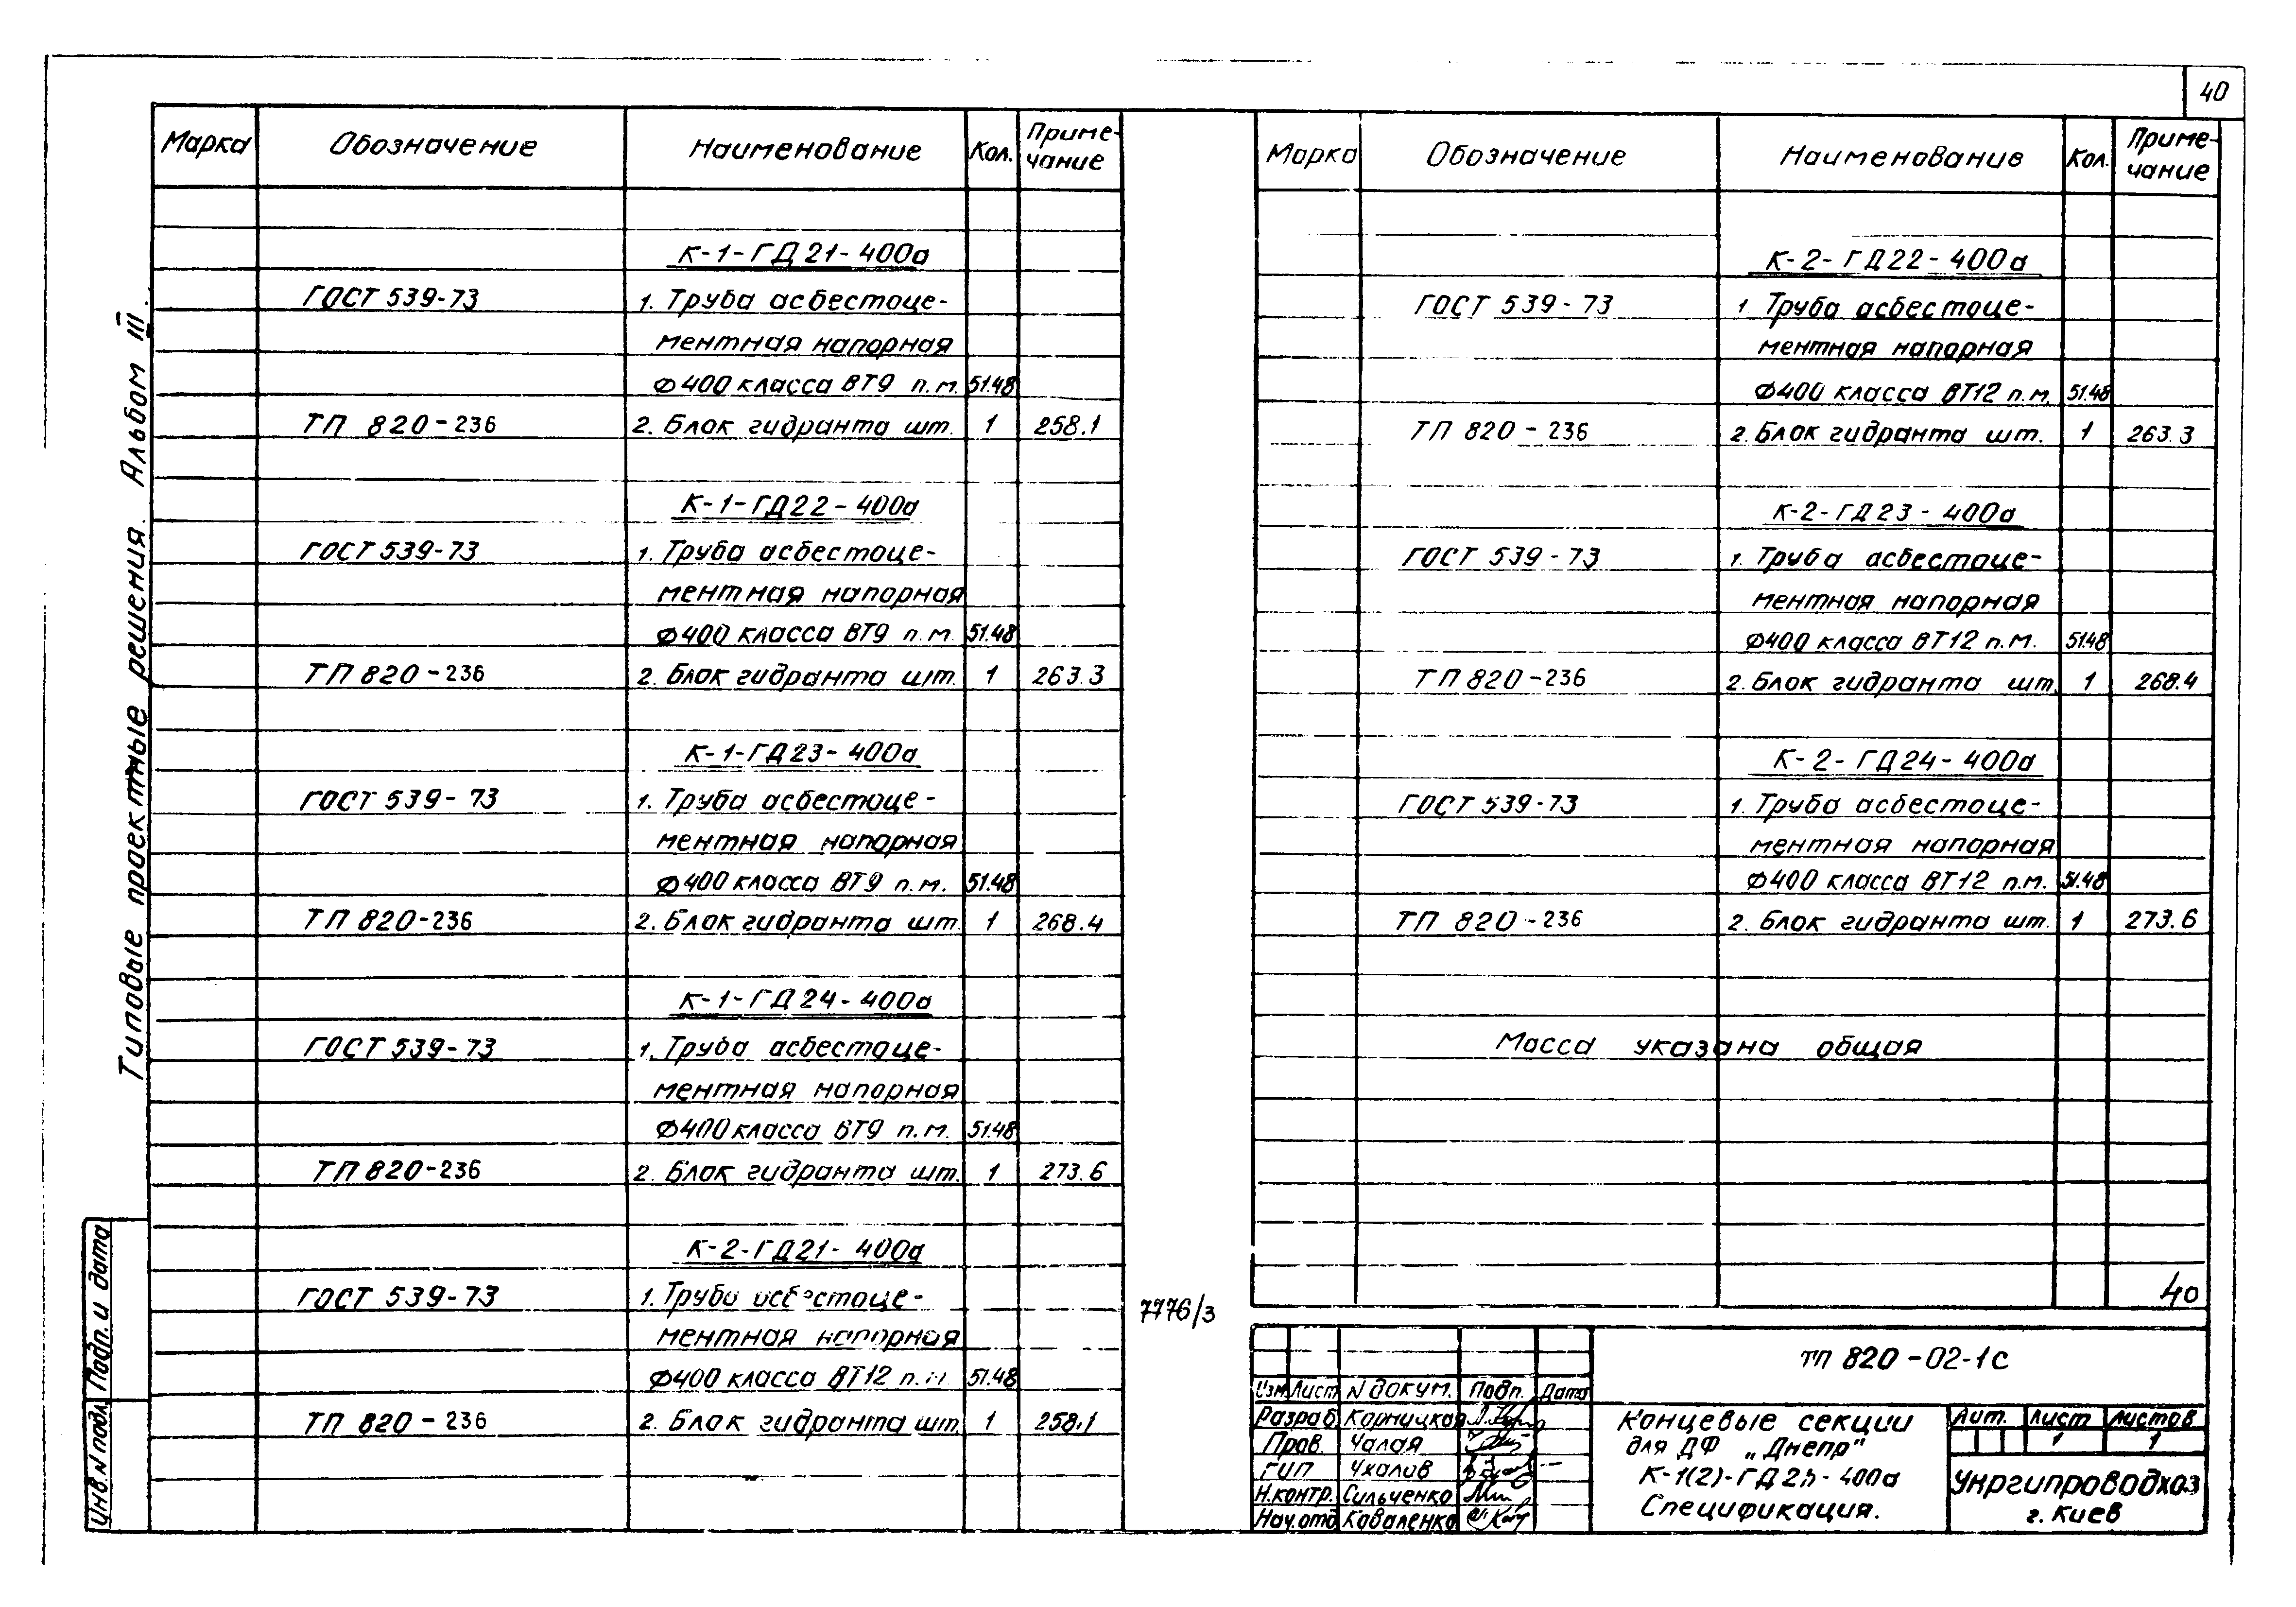 40
Типовые проектные решения. Альбом III
Марка Обозначение Наименование Кол. Приме-
чание
К-1-ГД21-400а
ГОСТ 539-73 1. Труба асбестоце-
ментная напорная
Ф400 класса ВТ9 п.м. 51.48
ТП 820-236 2. Блок гидранта шт. 1 258.1
К-1-ГД22-400а
ГОСТ 539-73 1. Труба асбестоце-
ментная напорная
Ф400 класса ВТ9 п.м. 51.48
ТП 820-236 2. Блок гидранта шт. 1 263.3
К-1-ГД23-400а
ГОСТ 539-73 1. Труба асбестоце-
ментная напорная
Ф400 класса ВТ9 п.м. 51.48
ТП 820-236 2. Блок гидранта шт. 1 268.4
К-1-ГД24-400а
ГОСТ 539-73 1. Труба асбестоце-
ментная напорная
Ф400 класса ВТ9 п.м. 51.48
ТП 820-236 2. Блок гидранта шт. 1 273.6
К-2-ГД21-400а
ГОСТ 539-73 1. Труба асбестоце-
ментная напорная
Ф400 класса ВТ12 п.м 51.48
ТП 820-236 2. Блок гидранта шт. 1 258.1
Инв. N подл. Подп. и дата
7776/3
Марка Обозначение Наименование Кол. Приме-
чание
К-2-ГД22-400а
ГОСТ 539-73 1 Труба асбестоце-
ментная напорная
Ф400 класса ВТ12 п.м. 51.48
ТП 820-236 2. Блок гидранта шт. 1 263.3
К-2-ГД23-400а
ГОСТ 539-73 1. Труба асбестоце-
ментная напорная
Ф400 класса ВТ12 п.м. 51.48
ТП 820-236 2. Блок гидранта шт. 1 268.4
К-2-ГД24-400а
ГОСТ 539-73 1. Труба асбестоце-
ментная напорная
Ф400 класса ВТ12 п.м. 51.48
ТП 820-236 2. Блок гидранта шт. 1 273.6
Масса указана общая
40
ТП 820-02-1с
Изм Лист N докум. Подп. Дата
Разраб. Корницкая
Пров. Чалая
ГИП Ухалив
Н.контр. Сильченко
Нач.отд Коваленко
Концевые секции
для ДФ „Днепр"
К-1(2)-ГД2n-400а
Спецификация.
Лит. Лист Листов
1 1
Укргипроводхоз
г. Киев